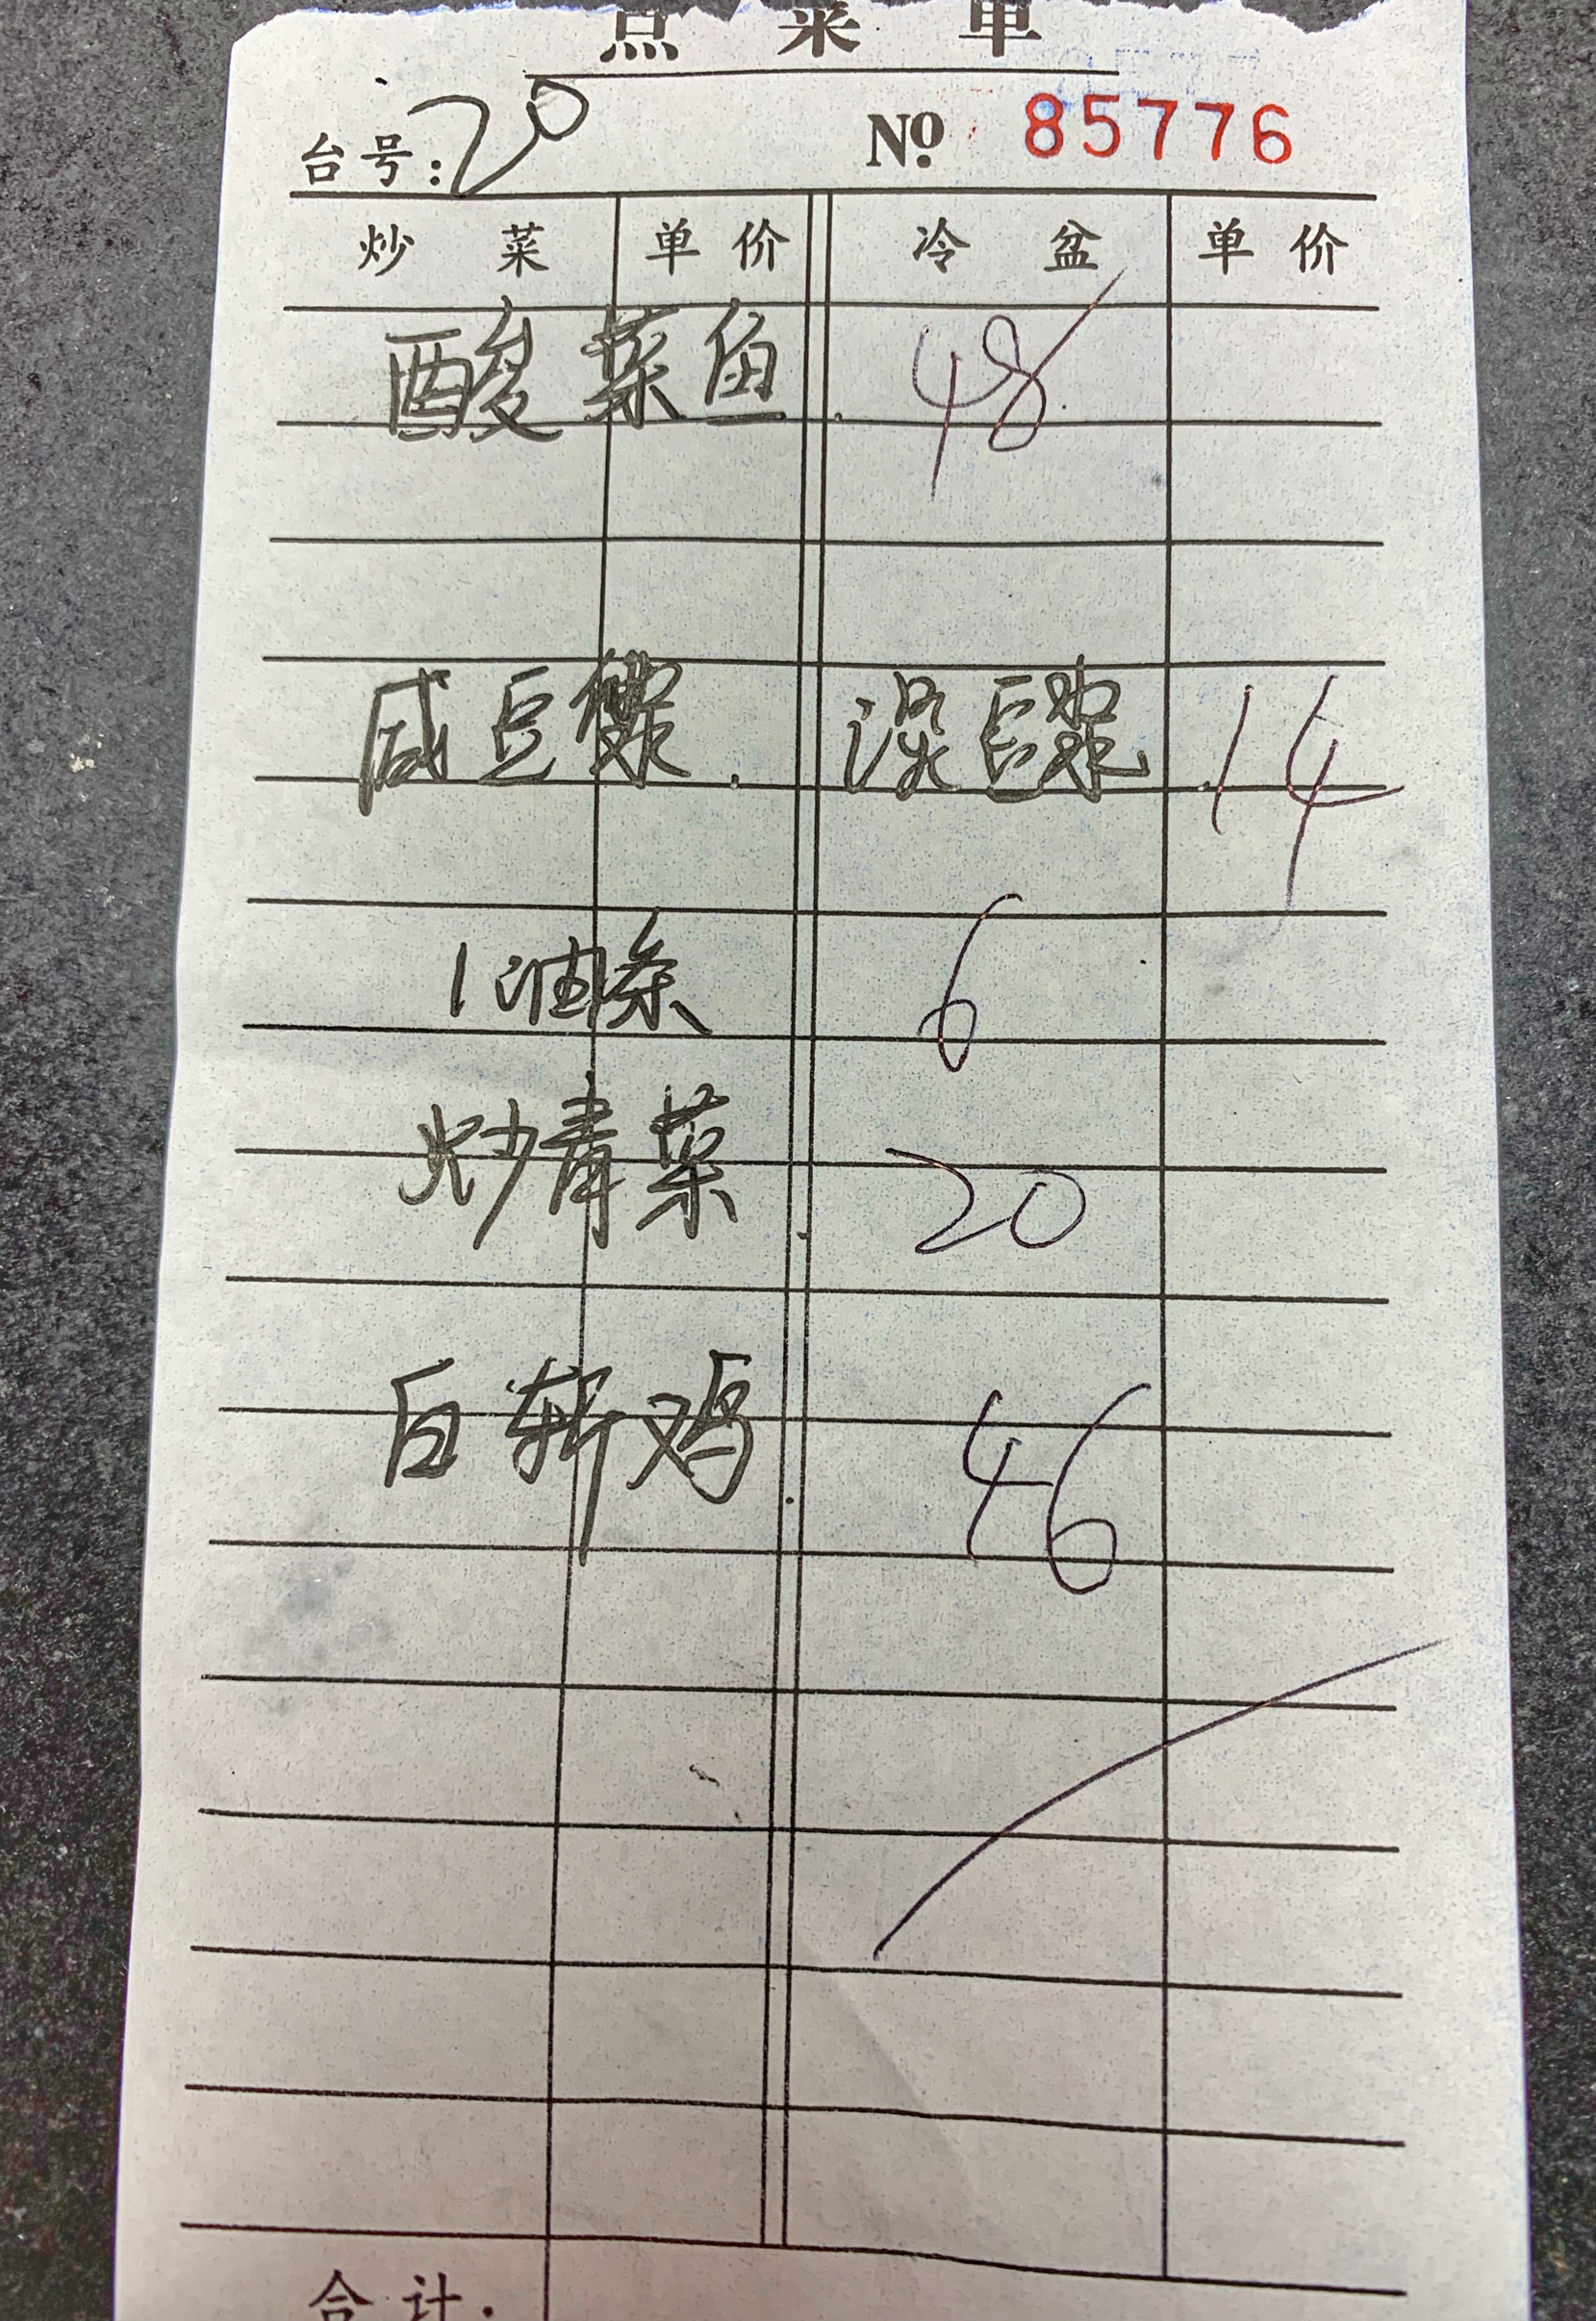 点菜单
台号: 20 № 85776
炒菜 单价 冷盆 单价
酸菜鱼. 48
咸豆浆. 混豆浆. 14
1油条 6
炒青菜. 20
白斩鸡. 46
合计: